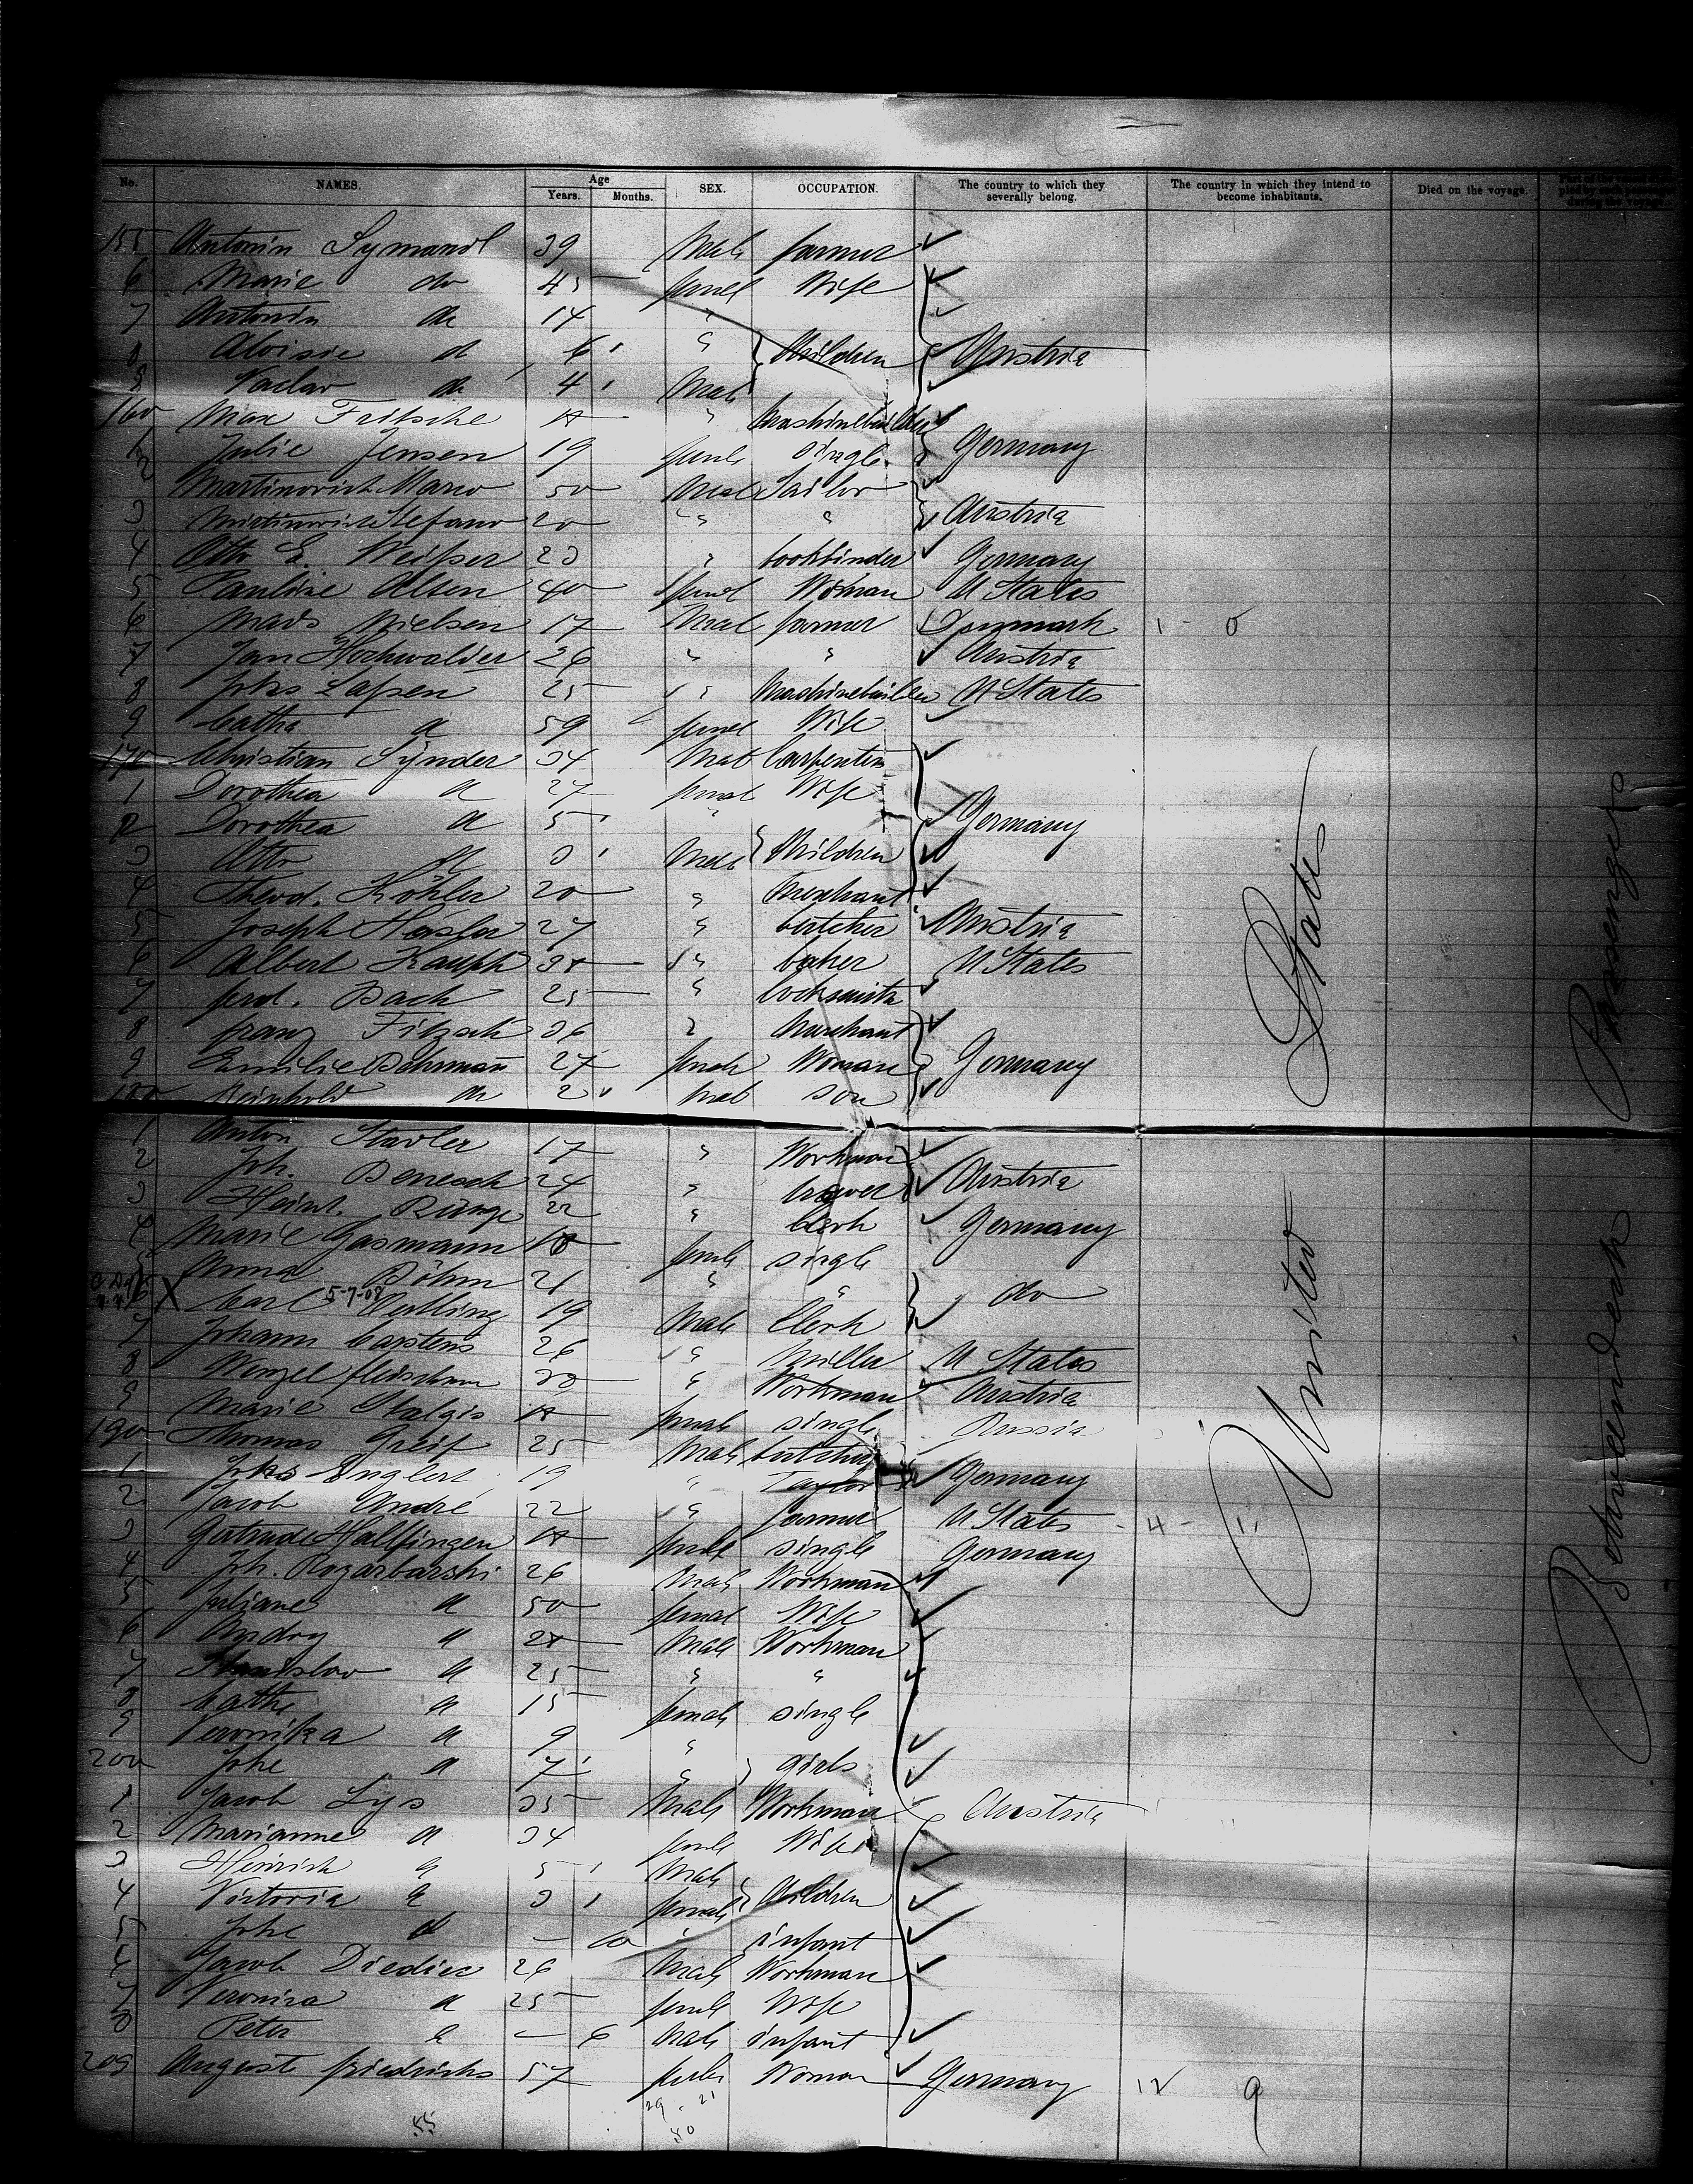 No. NAMES. Age Years. Months. SEX. OCCUPATION. The country to which they severally belong. The country in which they intend to become inhabitants. Died on the voyage. Part of the vessel occupied by each passenger during the voyage.
155 Antonin Symandl 39 Male farmer
6 Marie do 45 femel Wife
7 Antonin do 14 "
8 Aloisie do 6 " Children Austria
9 Vaclav do 4 Male
160 Max Fritsche 18 " Mashinebuilder
1 Julie Jensen 19 female single Germany
2 Martinovich Marco 50 Male Sailor
3 Martinovich Stefano 20 " " Austria
4 Otto E. Weisser 23 " bookbinder Germany
5 Pauline Olsen 40 femel Woman U States
6 Mads Nielsen 17 Male farmer Denmark 1 - 0
7 Jan Hochwalder 26 " " Austria
8 Johs Lassen 25 " Mashinebuilder U States
9 Catha do 59 femel Wife
170 Christian Synder 34 Male Carpenter
1 Dorothea do 27 femel Wife
2 Dorothea do 5 " Germany
3 Otto do 3 Male Children
4 Theod. Köhler 20 " Merchant
5 Joseph Hasler 27 " butcher Austria
6 Albert Kauph 38 " baker U States
7 ferd. Bach 25 " Locksmith
8 franz Fitzsch 36 " Merchant
9 Emilie Behrmann 27 female Woman Germany
180 Reinhold do 2 male son
1 Anton Stadler 17 " Workman
2 Joh. Benesch 24 " brewer Austria
3 Heinr. Runge 22 " Clerk Germany
4 Marie Gasmann 18 female single
5 Anna Böhm 21 " " do
6 X Carl 5-7-08 19 Male Clerk
7 Johann Carstens 26 " Miller U States
8 Wenzel fleischman 33 " Workman Austria
9 Marie Stalgis 18 female single Russia
190 Thomas Greif 25 Male butcher
1 Johs Englert 19 " Taylor Germany
2 Jacob André 22 " farmer U States - 4 - 1
3 Gertrude Hallfingen 18 female single Germany
4 Joh. Rogarbarski 26 Male Workman
5 Juliane do 50 female Wife
6 Andry do 28 Male Workman
7 Stanislav do 25 " "
8 Cathe do 15 female single
9 Veronika do 9 "
200 Johe do 7 " girls
1 Jacob Lys 35 Male Workman Austria
2 Marianne do 34 female Wife
3 Heinrich do 5 Male
4 Victoria do 3 female Children
5 Johe do - 10 " infant
6 Jacob Diedier 26 Male Workman
7 Veronica do 25 female Wife
8 Peter do - 6 Male infant
209 Auguste friedrichs 57 female Woman Germany 12 9
29 - 21
55 50
United States
Betweendeck Passengers